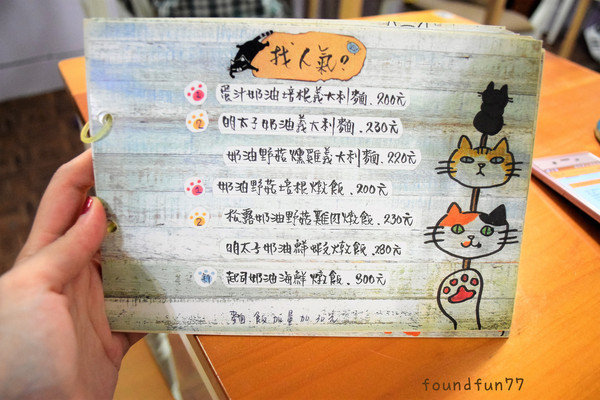 找人氣?
1 蛋汁奶油培根義大利麵.200元
2 明太子奶油義大利麵.230元
奶油野菇燻雞義大利麵.220元
1 奶油野菇培根燉飯.200元
2 松露奶油野菇雞肉燉飯.230元
明太子奶油鮮蝦燉飯.280元
新 起司奶油海鮮燉飯.300元
麵.飯加量加
foundfun77